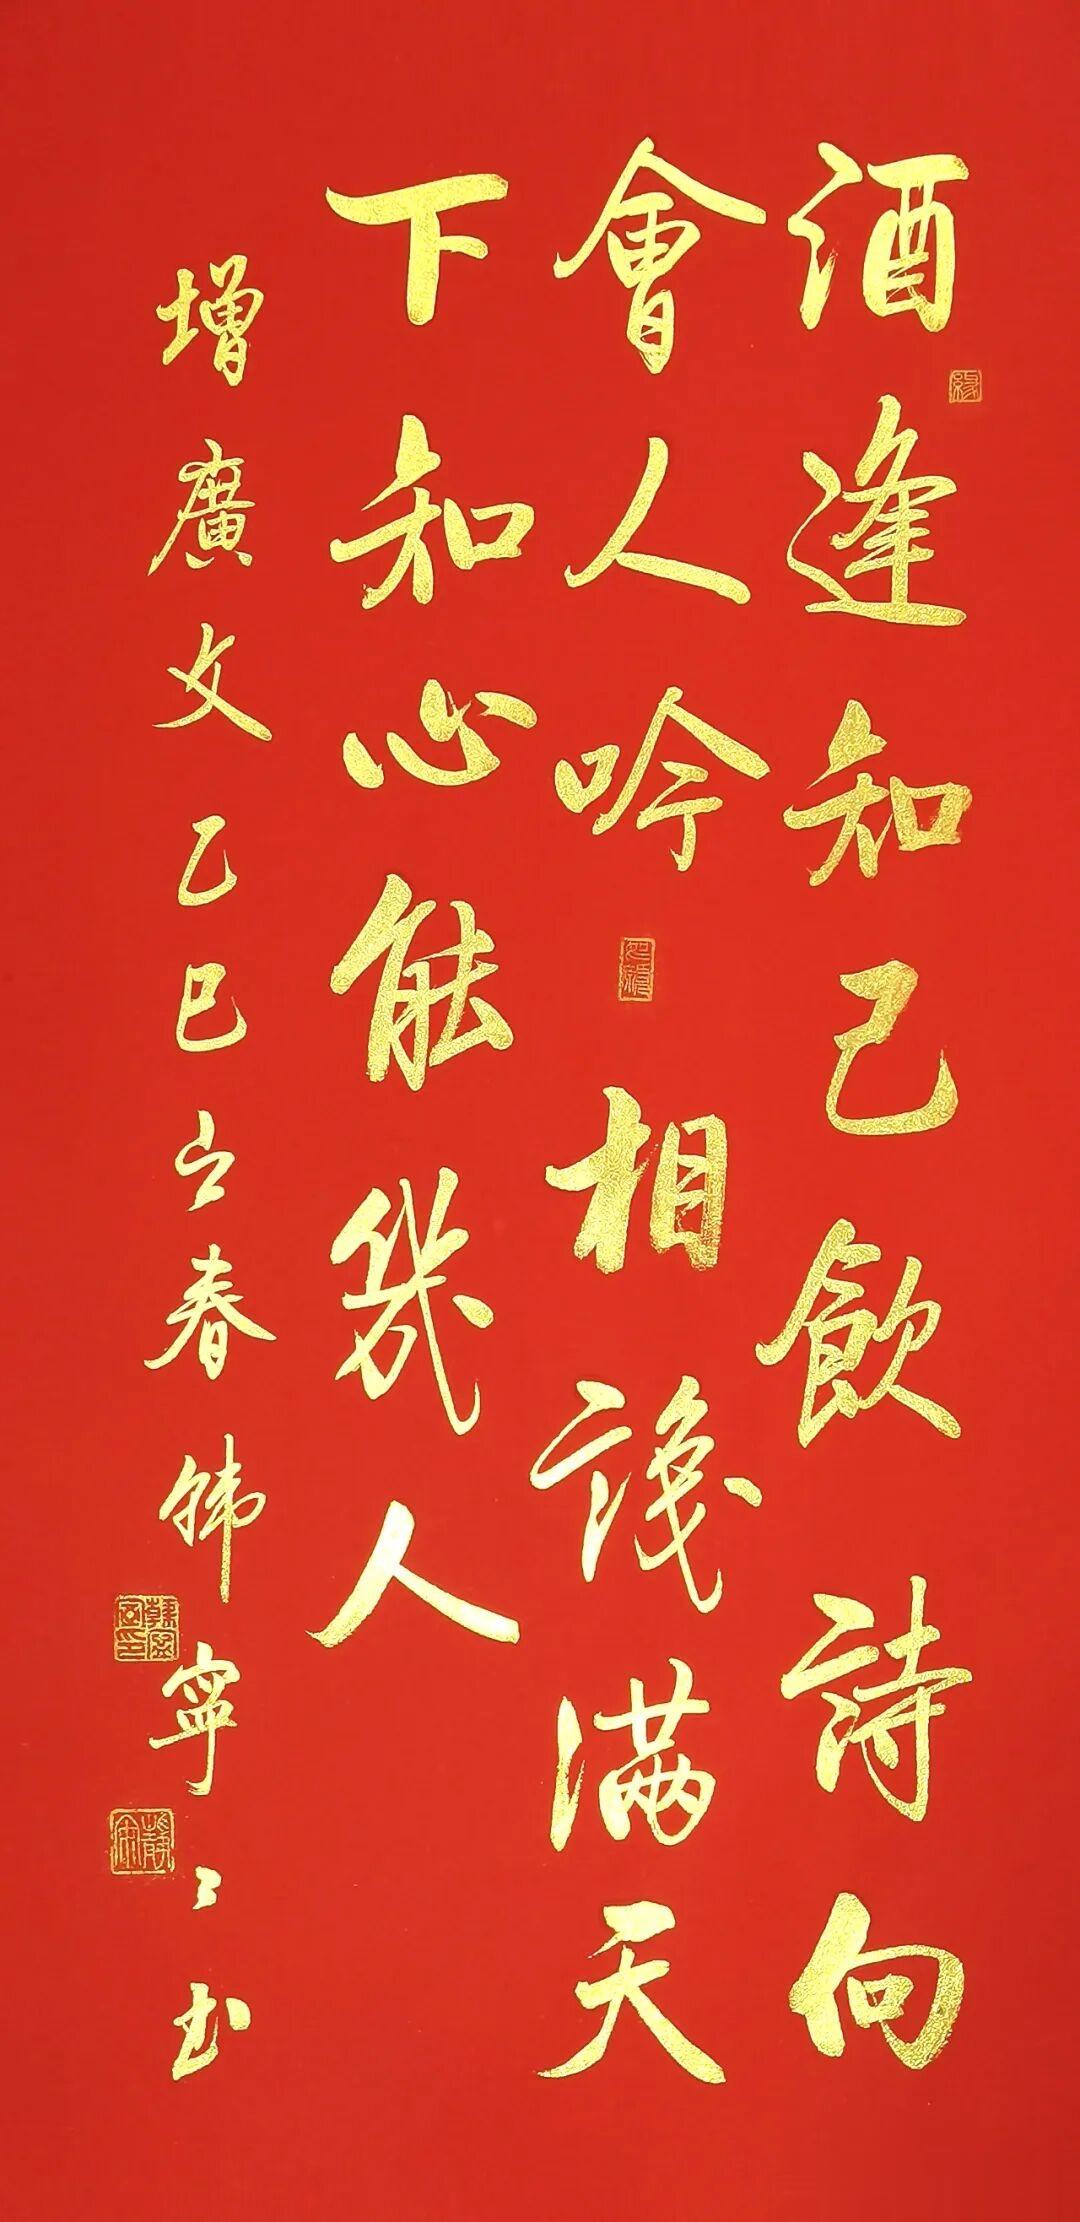 酒逢知己飲詩向
會人吟相識滿天
下知心能幾人
增廣文乙巳立春韩寧寧书
緣